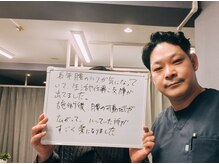 お年腰のハリが気になって
いて、生活や仕事に支障が
出てました。
施術後、腰の可動域が
広がって、ハっていた所が
すごく楽になりました